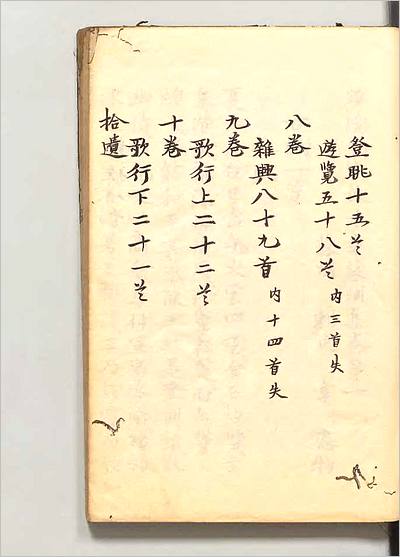 登眺十五首
遊覧五十八首 内三首失
八巻
雜興八十九首 内十四首失
九巻
歌行上二十二首
十巻
歌行下二十一首
拾遺